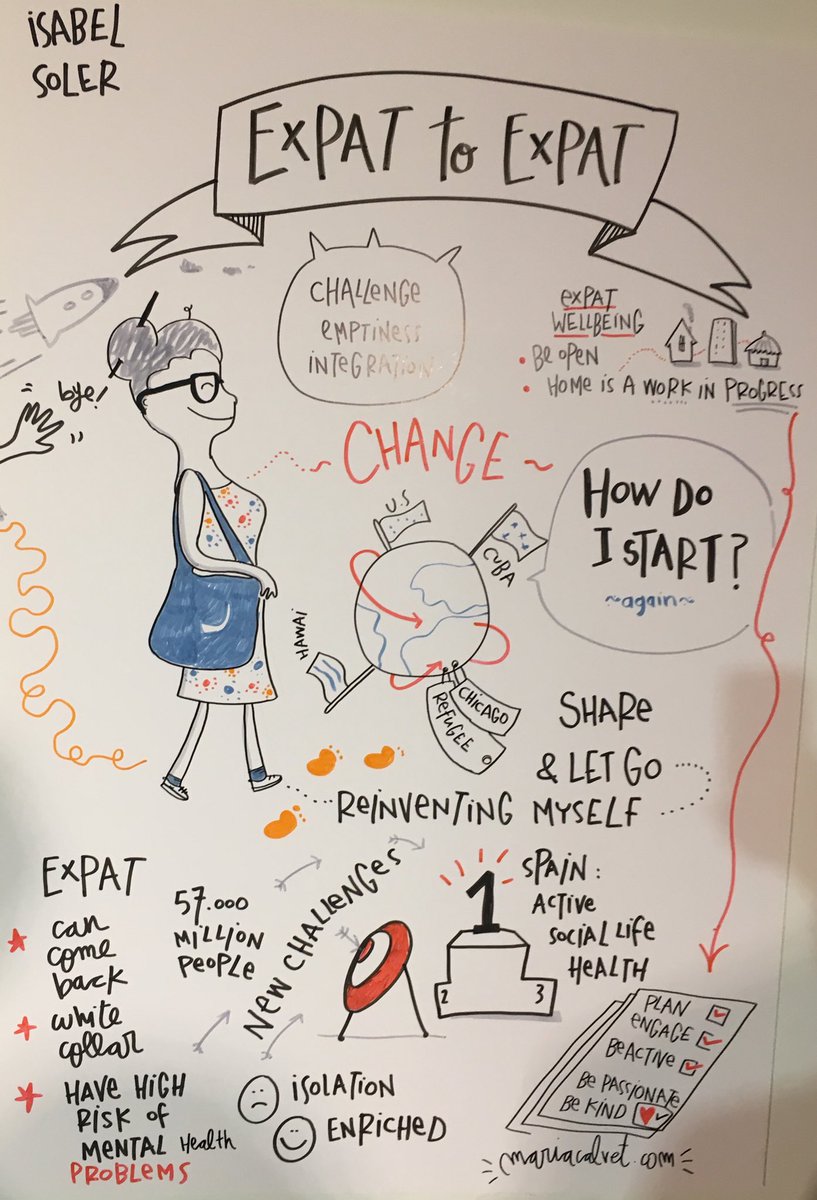 iSABEL
SOLER
EXPAT to EXPAT
CHALLENGE
EMPTINESS
INTEGRATION
EXPAT
WELLBEING
• BE OPEN
• HOME IS A WORK IN PROGRESS
bye!
~ CHANGE ~
HOW DO
I START?
~again~
U.S
CUBA
HAWAI
CHICAGO
REFUGEE
SHARE
& LET GO
REINVENTING MYSELF
EXPAT
can
come
back
white
collar
HAVE HIGH
RISK OF
MENTAL Health
PROBLEMS
57.000
MILLION
PEOPLE
NEW CHALLENGES
1
2
3
SPAIN:
ACTIVE
SOCIAL LIFE
HEALTH
ISOLATION
ENRICHED
PLAN
ENGAGE
BE ACTIVE
BE PASSIONATE
BE KIND
mariacalvet.com